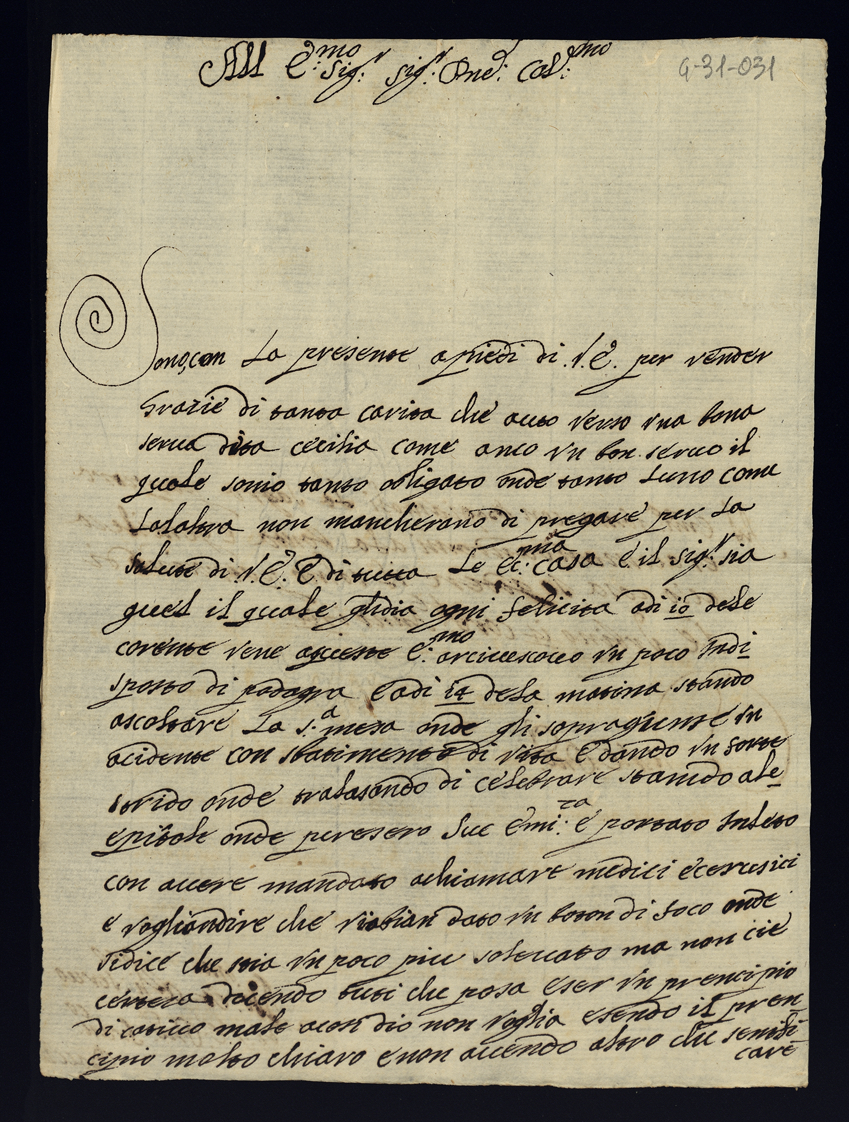 All E.mo Sig.r Sig.r Pne. Col.mo
G-31-031
Sono con La presente a piedi di V. E. per render
Grazie di tanta carita che auto verso una bona
serua dita cecilia come anco un bon seruo il
quale sonio tanto obligato onde tanto Luno come
Lalatra non mancherano di pregare per La
Salute di V. E. E di tutta Le Ec.ma Casa e il sig.r sia
quel il quale glidia ogni felicita adi 10 dele
corente vene E.mo arciuescouo un poco Indi
sposto di podagra E adi 14 dela matina stando
ascoltare La S.a mesa onde gli sopragiunse un
acidente con sbatimento di vita E dando un forte
strido onde tralasando di celebrare stando ale
epistole onde presero Sue Emi.za e portato Inleto
con auere mandato achiamare medici e cerusici
e vogliondire che viabian dato un boton di foco onde
sidice che stia un poco piu soleuato ma non cie
certeza dicendo tuti che posa eser un prencipio
di catiuo male acon dio non voglia esendo il pren
cipio molto chiaro e non auendo altro che senifi
care